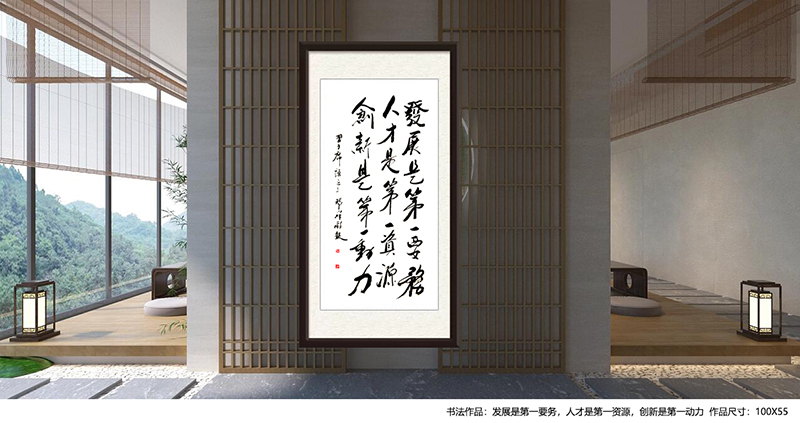 發展是第一要務
人才是第一資源
創新是第一動力
书法作品：发展是第一要务，人才是第一资源，创新是第一动力 作品尺寸：100X55